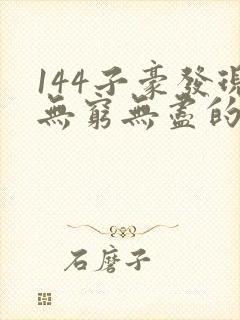 144子豪發現
無窮無盡的
石磨子